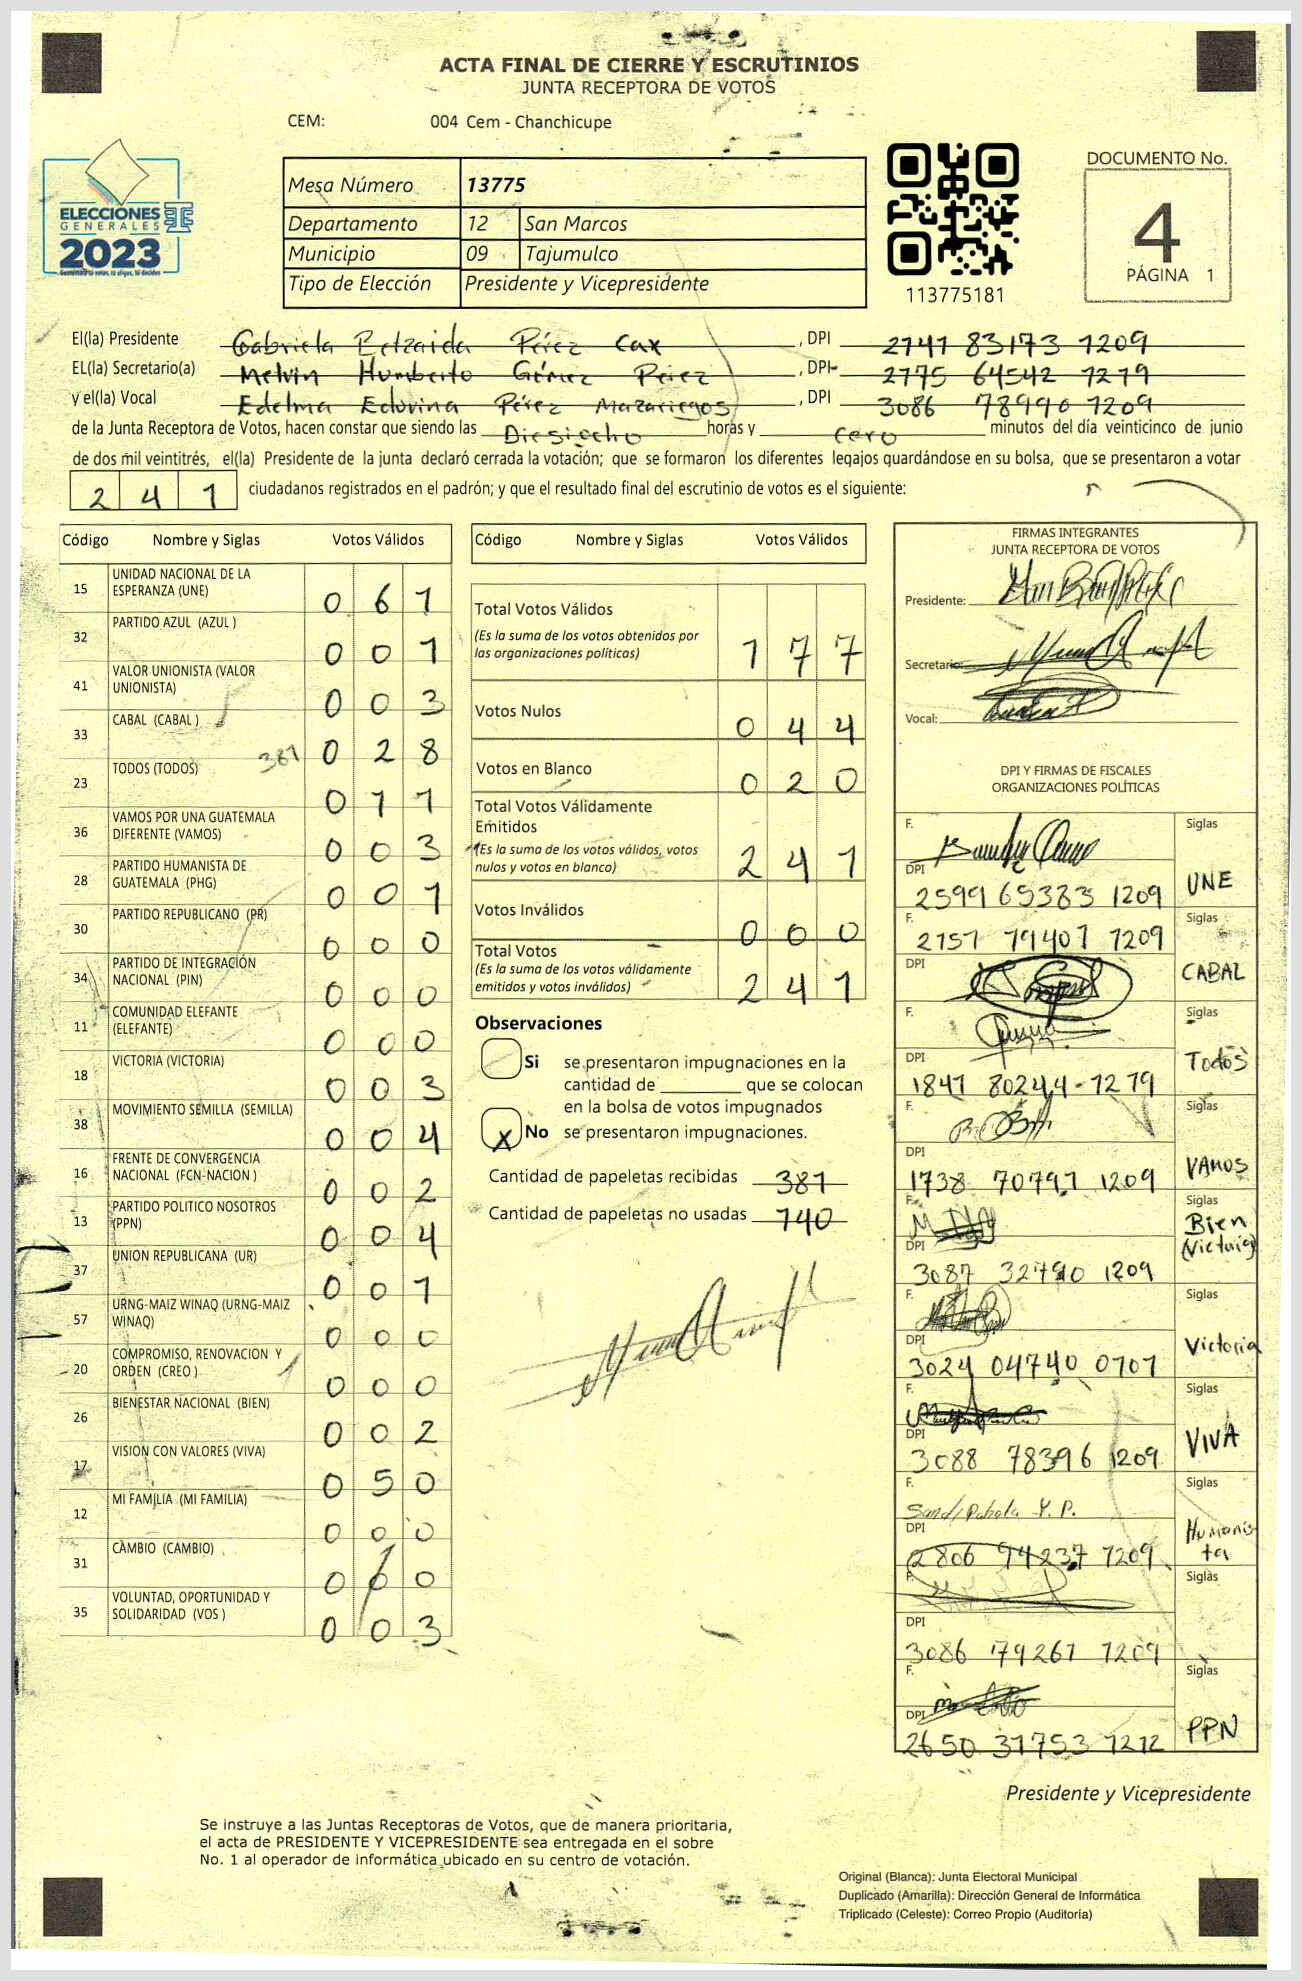 ACTA FINAL DE CIERRE Y ESCRUTINIOS
JUNTA RECEPTORA DE VOTOS
CEM: 004 Cem - Chanchicupe
ELECCIONES
GENERALES
2023
Mesa Número 13775
Departamento 12 San Marcos
Municipio 09 Tajumulco
Tipo de Elección Presidente y Vicepresidente
113775181
DOCUMENTO No.
4
PÁGINA 1
El(la) Presidente Gabriela Betzaida Pérez Cax, DPI 2741 83173 1209
EL(la) Secretario(a) Melvin Humberto Gómez Pérez, DPI 2775 64542 1219
y el(la) Vocal Edelma Eduvina Pérez Mazariegos, DPI 3086 78990 1209
de la Junta Receptora de Votos, hacen constar que siendo las Diesiocho horas y cero minutos del día veinticinco de junio
de dos mil veintitrés, el(la) Presidente de la junta declaró cerrada la votación; que se formaron los diferentes legajos guardándose en su bolsa, que se presentaron a votar
241 ciudadanos registrados en el padrón; y que el resultado final del escrutinio de votos es el siguiente:
Código Nombre y Siglas Votos Válidos
15 UNIDAD NACIONAL DE LA ESPERANZA (UNE) 061
32 PARTIDO AZUL (AZUL ) 001
41 VALOR UNIONISTA (VALOR UNIONISTA) 003
33 CABAL (CABAL ) 028
381
23 TODOS (TODOS) 011
36 VAMOS POR UNA GUATEMALA DIFERENTE (VAMOS) 003
28 PARTIDO HUMANISTA DE GUATEMALA (PHG) 001
30 PARTIDO REPUBLICANO (PR) 000
34 PARTIDO DE INTEGRACIÓN NACIONAL (PIN) 000
11 COMUNIDAD ELEFANTE (ELEFANTE) 000
18 VICTORIA (VICTORIA) 003
38 MOVIMIENTO SEMILLA (SEMILLA) 004
16 FRENTE DE CONVERGENCIA NACIONAL (FCN-NACION ) 002
13 PARTIDO POLITICO NOSOTROS (PPN) 004
37 UNION REPUBLICANA (UR) 001
57 URNG-MAIZ WINAQ (URNG-MAIZ WINAQ) 000
20 COMPROMISO, RENOVACION Y ORDEN (CREO ) 000
26 BIENESTAR NACIONAL (BIEN) 002
17 VISION CON VALORES (VIVA) 050
12 MI FAMILIA (MI FAMILIA) 000
31 CAMBIO (CAMBIO) 000
35 VOLUNTAD, OPORTUNIDAD Y SOLIDARIDAD (VOS ) 003
Código Nombre y Siglas Votos Válidos
Total Votos Válidos 177
(Es la suma de los votos obtenidos por
las organizaciones políticas)
Votos Nulos 044
Votos en Blanco 020
Total Votos Válidamente Emitidos 241
(Es la suma de los votos válidos, votos
nulos y votos en blanco)
Votos Inválidos 000
Total Votos 241
(Es la suma de los votos válidamente
emitidos y votos inválidos)
Observaciones
Si se presentaron impugnaciones en la
cantidad de ________ que se colocan
en la bolsa de votos impugnados
X No se presentaron impugnaciones.
Cantidad de papeletas recibidas 381
Cantidad de papeletas no usadas 140
FIRMAS INTEGRANTES
JUNTA RECEPTORA DE VOTOS
Presidente:
Secretario:
Vocal:
DPI Y FIRMAS DE FISCALES
ORGANIZACIONES POLÍTICAS
F. Siglas
DPI 2599 65383 1209 UNE
F. 2157 79407 1209 Siglas
DPI CABAL
F. Siglas
DPI 1841 80244-1219 Todos
F. Siglas
DPI 1738 70797 1209 VAMOS
F. Siglas
DPI 3087 32790 1209 Bien (Victoria)
F. Siglas
DPI 3024 04740 0101 Victoria
F. Siglas
DPI 3088 78396 1209 VIVA
F. Siglas
DPI 2806 94237 1209 Humanista
F. Siglas
DPI 3086 79261 1209
F. Siglas
DPI 2650 31753 1212 PPN
Presidente y Vicepresidente
Se instruye a las Juntas Receptoras de Votos, que de manera prioritaria,
el acta de PRESIDENTE Y VICEPRESIDENTE sea entregada en el sobre
No. 1 al operador de informática ubicado en su centro de votación.
Original (Blanca): Junta Electoral Municipal
Duplicado (Amarilla): Dirección General de Informática
Triplicado (Celeste): Correo Propio (Auditoría)